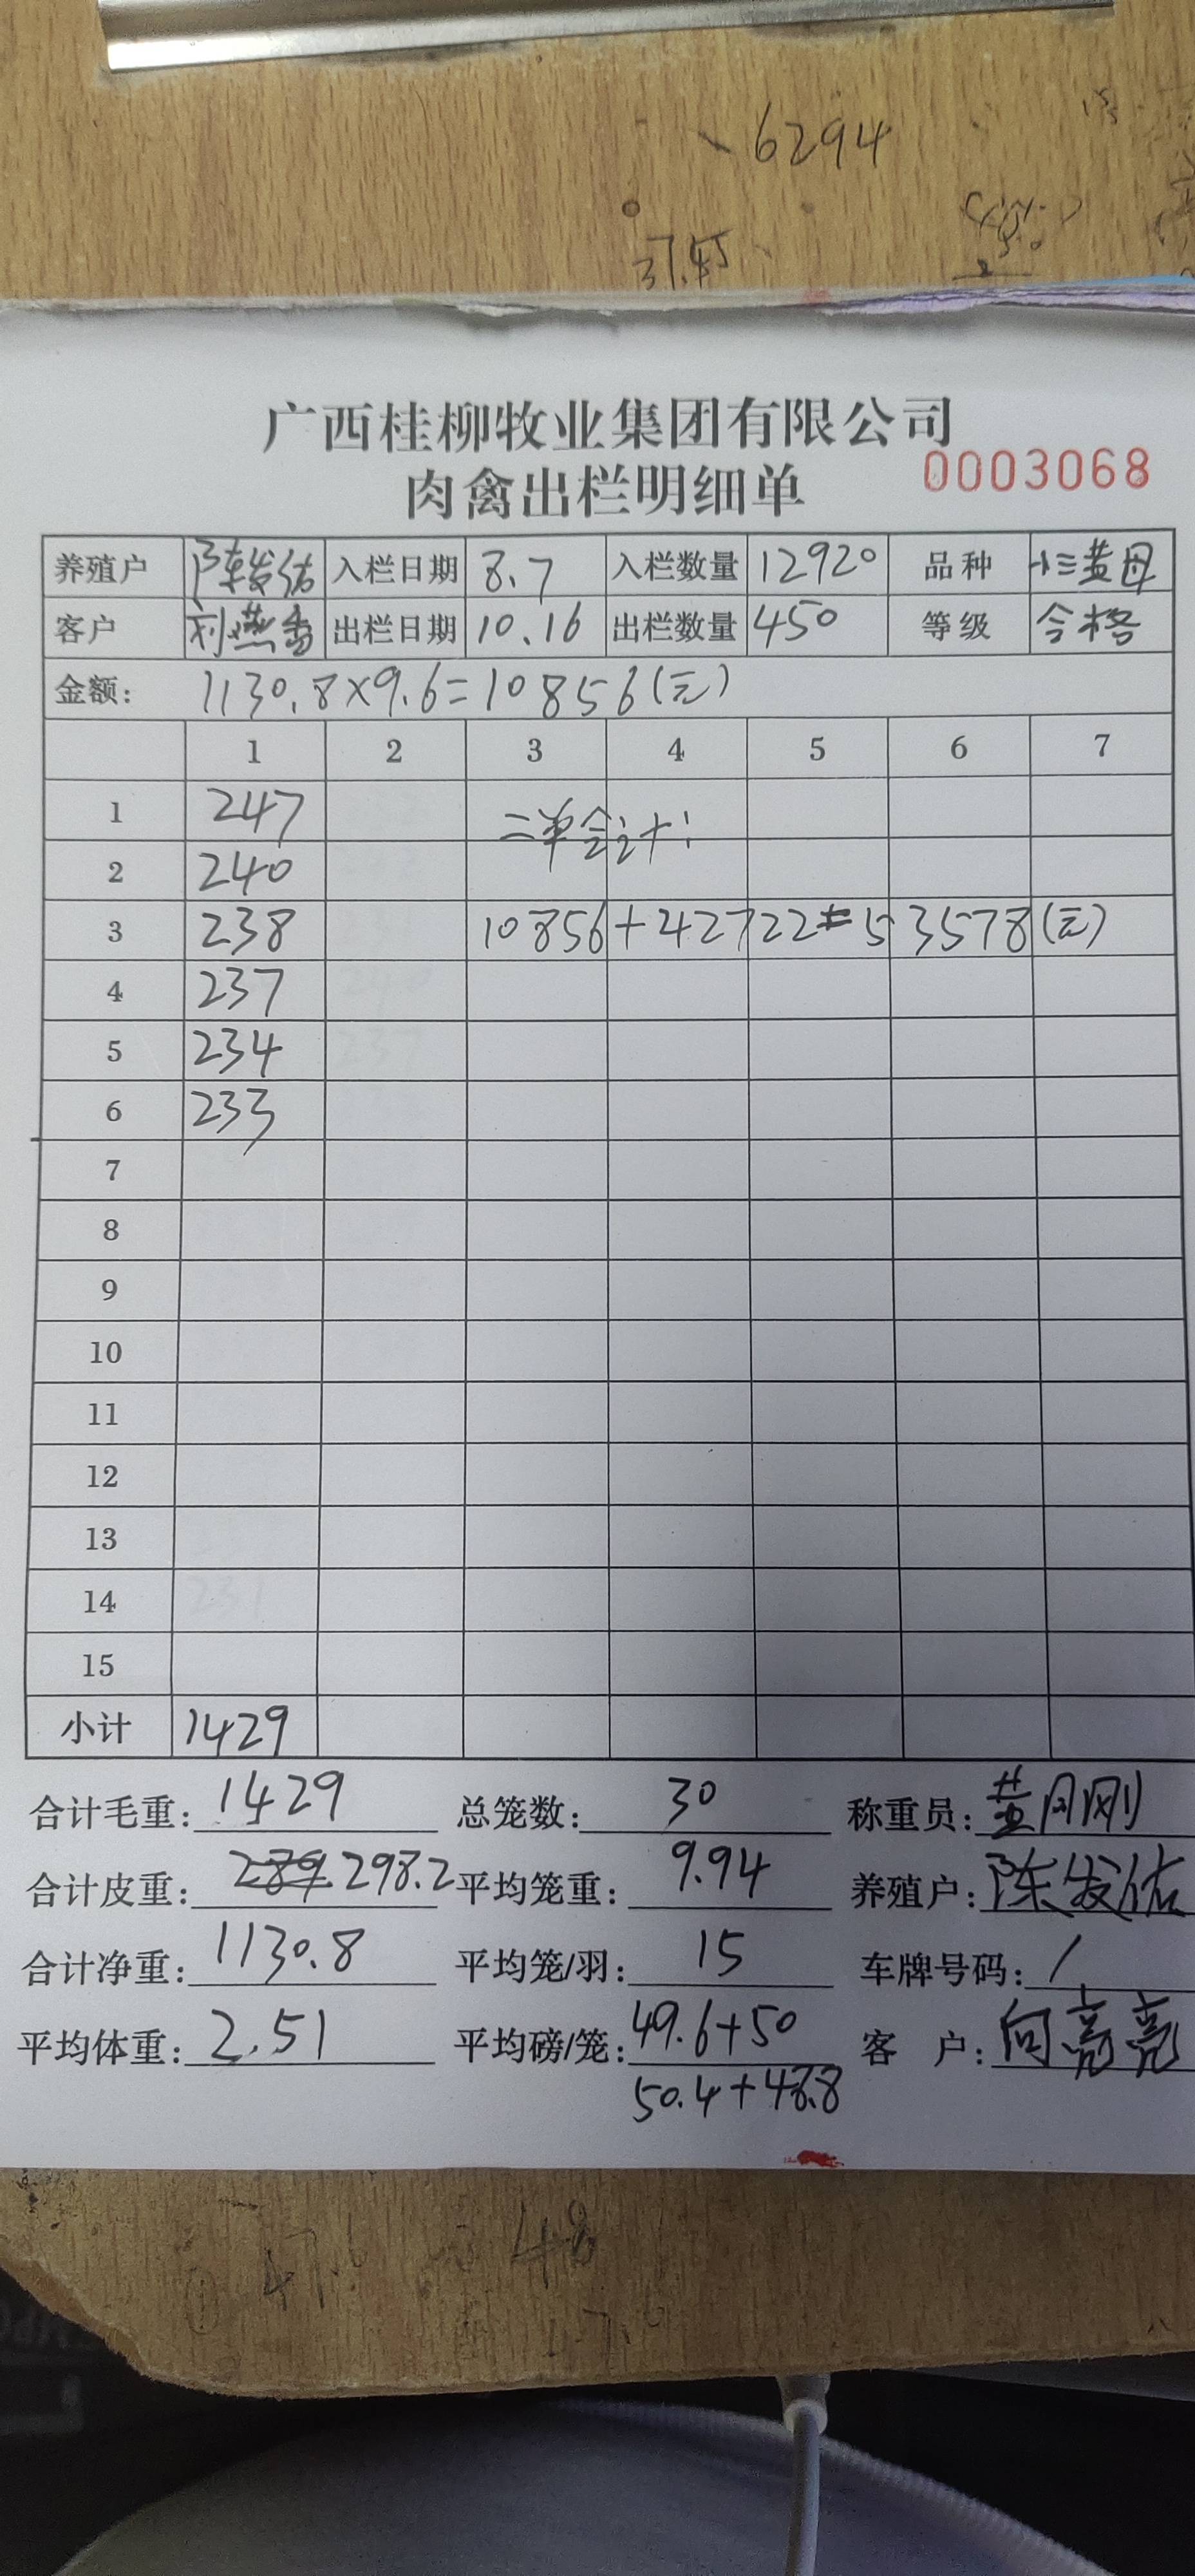 6294
37.45
广西桂柳牧业集团有限公司
肉禽出栏明细单
0003068
养殖户 陈发佑 入栏日期 8.7 入栏数量 12920 品种 小三黄母
客户 刘燕香 出栏日期 10.16 出栏数量 450 等级 合格
金额: 1130.8×9.6=10856(元)
1 2 3 4 5 6 7
1 247
二单合计:
2 240
3 238 10856+42722=53578(元)
4 237
5 234
6 233
7
8
9
10
11
12
13
14
15
小计 1429
合计毛重: 1429 总笼数: 30 称重员: 黄丹刚
合计皮重: 289 298.2 平均笼重: 9.94 养殖户: 陈发佑
合计净重: 1130.8 平均笼/羽: 15 车牌号码: /
平均体重: 2.51 平均磅/笼: 49.6+50 客 户: 向亮亮
50.4+48.8
48